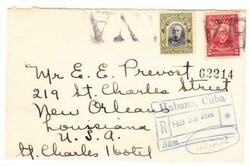 62214
Mr E. E. Prevost
219 St. Charles Street
New Orleans
Louisiana
U.S.A
St Charles Hotel
Habana, Cuba
R
FEB
Núm.